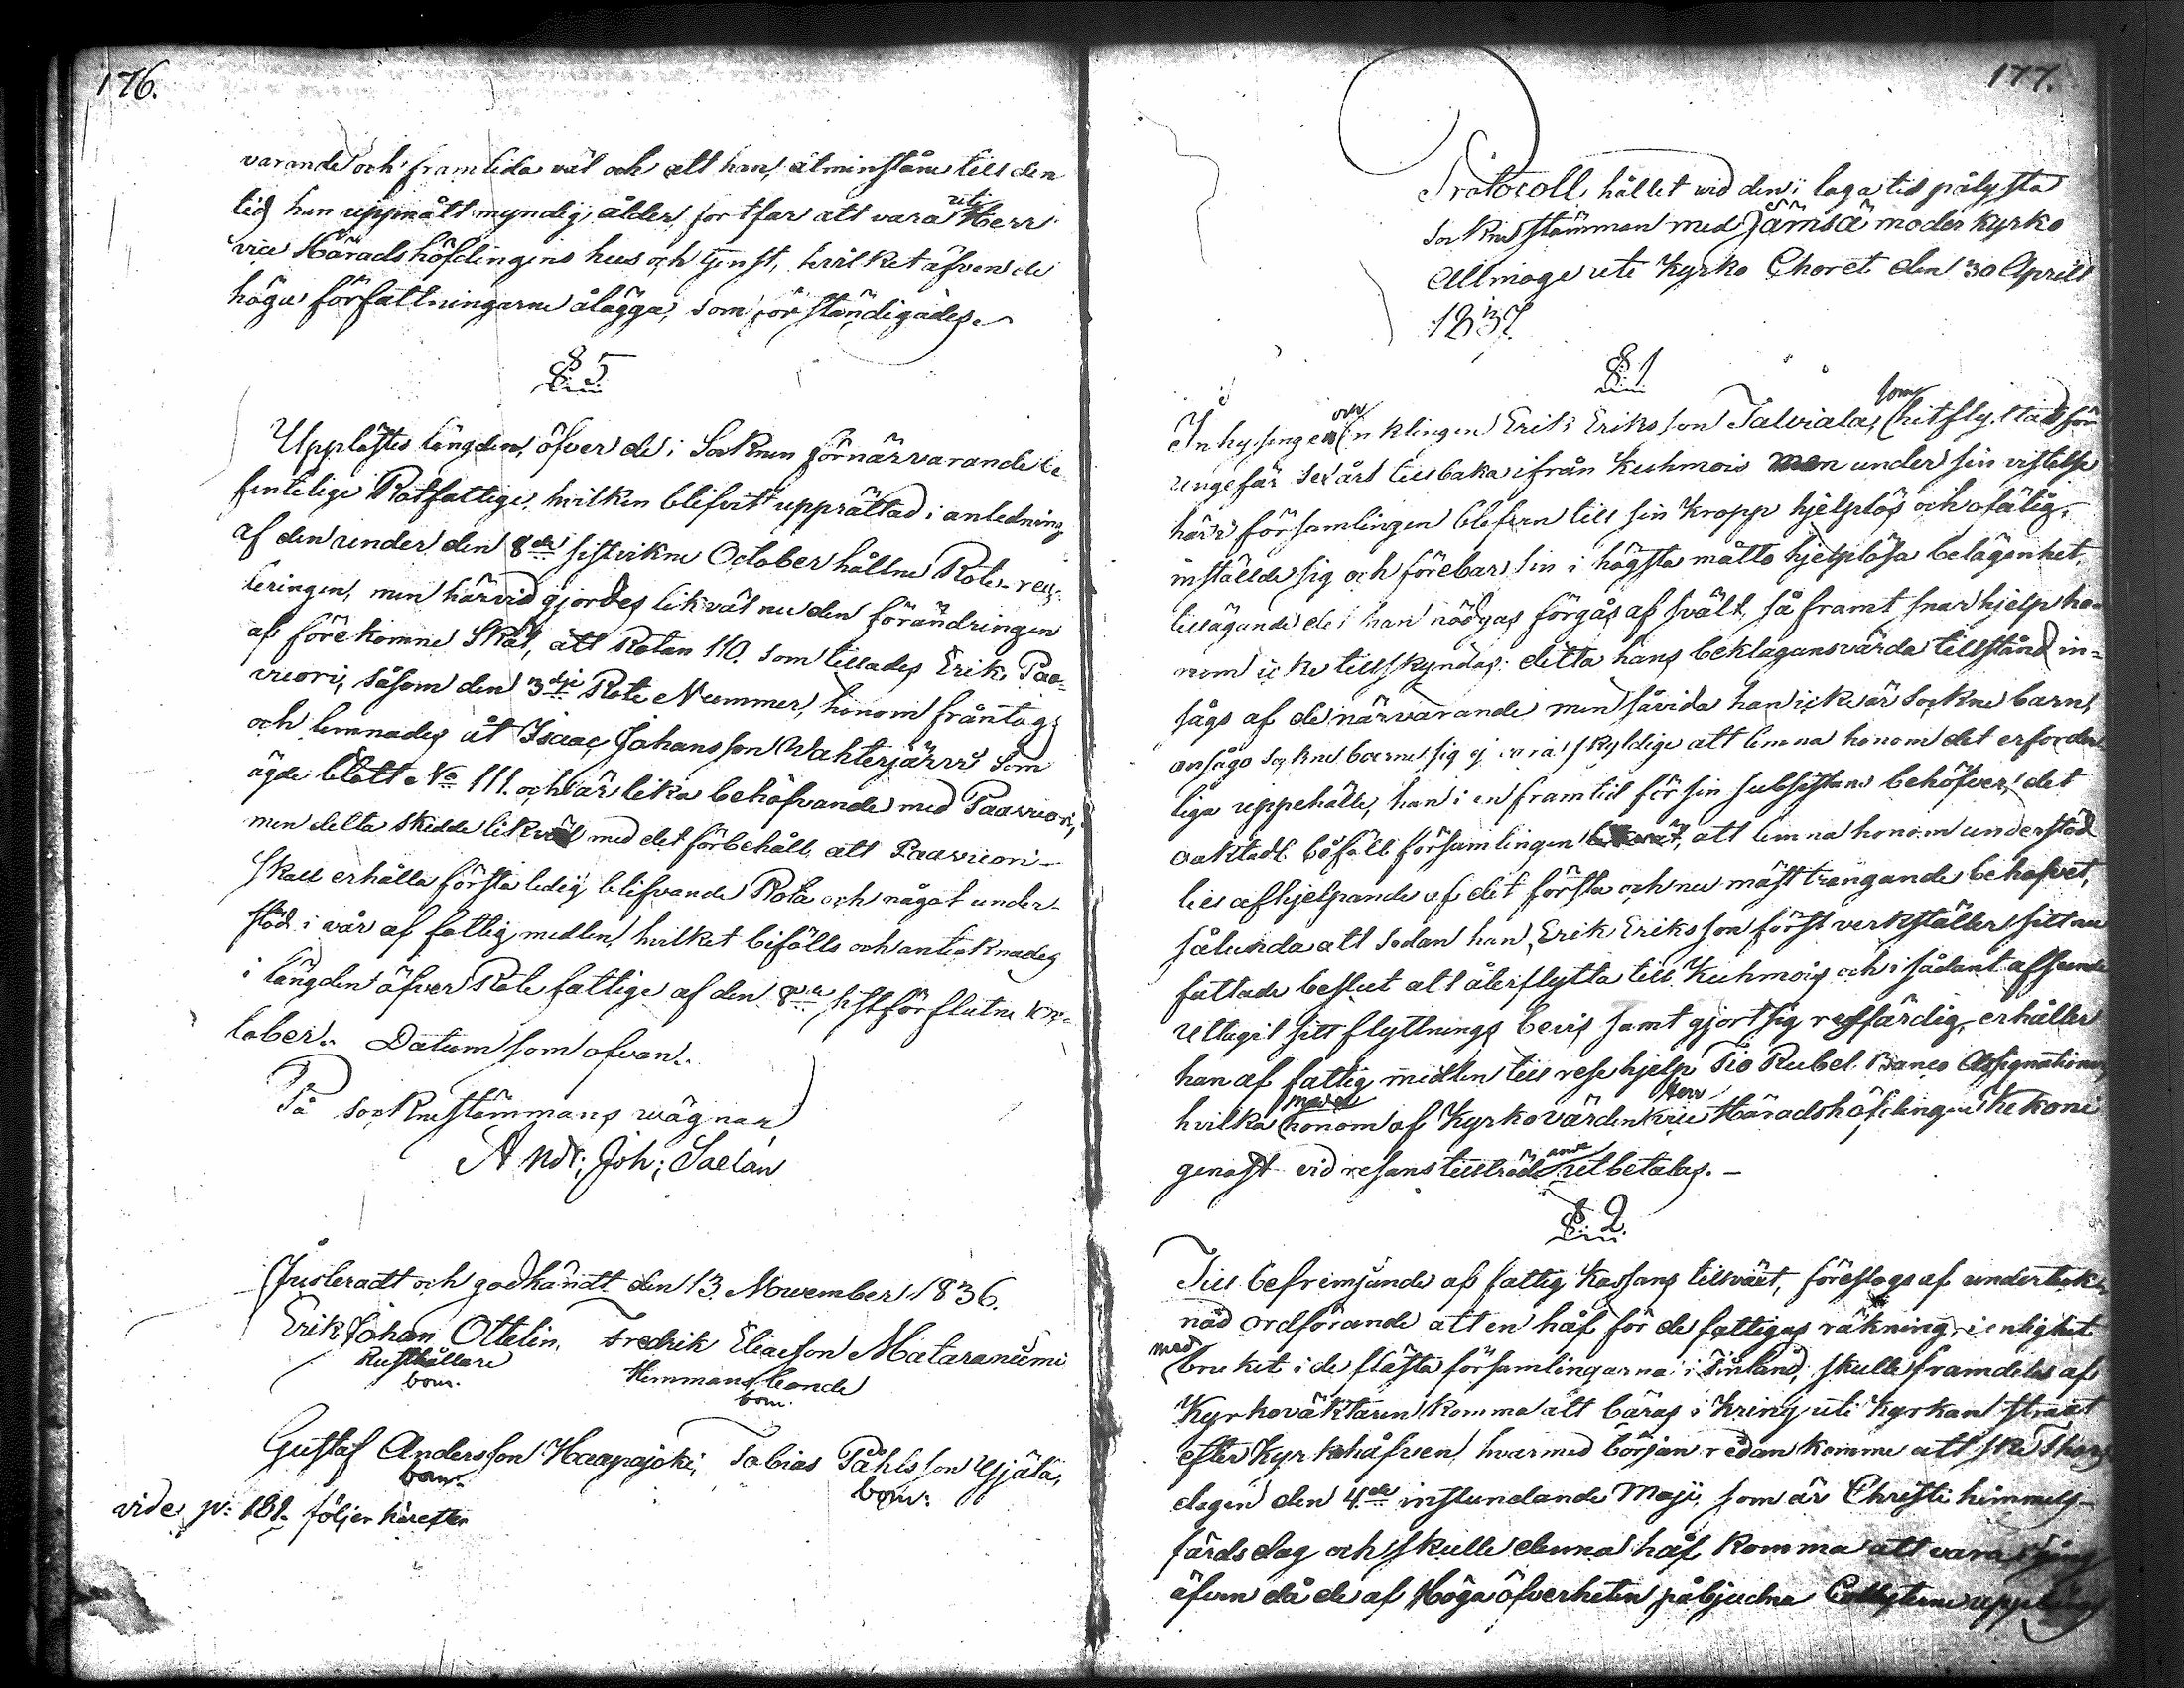 176.
varande och framtida väl och att han, åtminstone till den
tid han uppnått myndig ålder, fortfar att vara uti Herr
vice Häradshöfdingens hus och tjenst, hvilket äfven de
höga författningarne ålägga, som förständigades.
§ 5
Upplästes längden öfver de i Soknen förnärvarande be-
fintelige Rotfattige, hvilken blifvit upprättad i anledning
af den under den 8de sistvikne October hållne Rote-reg-
leringen, men härvid gjordes likväl nu den förändringen
af förekomne Skäl, att Rotan 110. som tillades Erik Paa-
vuori, såsom den 3dje Rote Nummer, honom fråntogs
och lemnades åt Isaac Johansson Wahterjärvi som
ägde blott No 111. och är lika behöfvande med Paavuori,
men detta skedde likväl med det förbehåll att Paavuori
skall erhålla första ledig blifvande Rota och något under-
stöd i vår af fattig medlen, hvilket bifölls och antecknades
i längden öfver Rote fattige af den 8de sistförflutne Oc-
tober. Datum som ofvan.
På Soknestämmans wägnar
Andr: Joh: Saelan
Justeradt och godkändt den 13 November 1836.
Erik Johan Ottelin, Fredrik Eliaeson Mataraniemi
Rusthållare Hemmansbonde
bom. bom.
Gustaf Andersson Haapajoki, Tobias Påhlsson Yijälä,
bom. bom.
vide p: 181. följer härefter
177.
Protocoll, hållet vid den i laga tid pålysta
soknestämman med Jämsä moderkyrko
Allmoge uti Kyrko Choret den 30 April
1837.
§ 1
Inhysingen och enklingen Erik Eriksson Talviala, som hitflyttad för
ungefär sex års tillbaka ifrån Kuhmois men under sin vistelse
här i församlingen blefven till sin kropp hjelplös och ofälig,
inställde sig och förebar sin i högsta måtto hjelplösa belägenhet,
tillägande det han nödgas förgås af svält, så framt snar hjelp ho-
nom icke tillskyndas: detta hans beklagansvärda tillstånd in-
sågs af de närvarande men såvida han icke är Soknebarn,
ansågo Sokneboerne sig ej vara skyldige att lemna honom det erforder-
liga uppehälle, han i en framtid för sin subsistans behöfver, det
oaktadt biföll församlingen att lemna honom understöd
till afhjelpande af det första och nu mäst trängande behofvet,
sålunda att sedan han, Erik Eriksson först verkställer sitt nu
fattade beslut att återflytta till Kuhmois och i sådant afseende
uttagit sitt flyttnings bevis samt gjort sig resfärdig, erhåller
han af fattig medlen till rese hjelp Tio Rubel Banco Assignationer,
hvilka honom af Kyrkovärden Herr vice Häradshöfdingen Kekoni
genast vid resans tillträdande utbetalas.
§ 2.
Till befremjande af fattig Kassans tillväxt, föreslogs af undertek-
nad ordförande att en håf för de fattigas räkning, i enlighet
med bruket i de flästa församlingarna i Finland, skulle framdeles af
Kyrkoväktaren komma att bäras i kring uti kyrkan straxt
efter Kyrkohåfven, hvarmed början redan komme att ske Thors-
dagen den 4de instundande Maji, som är Christi himmels-
färds dag och skulle denna håf komma att vara i gång
äfven då de af Höga öfverheten påbjudna Collecterne